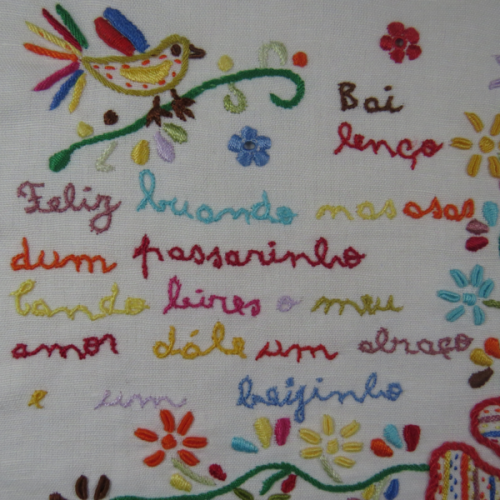 Bai
lenço
Feliz buando mas asas
dum passarinho
cando bires o meu
amor dále um abraço
e um beijinho